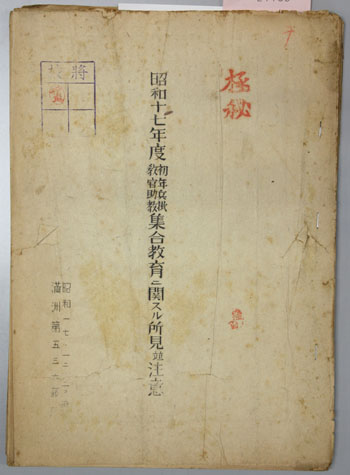 極秘
昭和十七年度初年兵掛教官助教集合教育ニ関スル所見並注意
昭和一七、一二、一
満洲第五三
將校